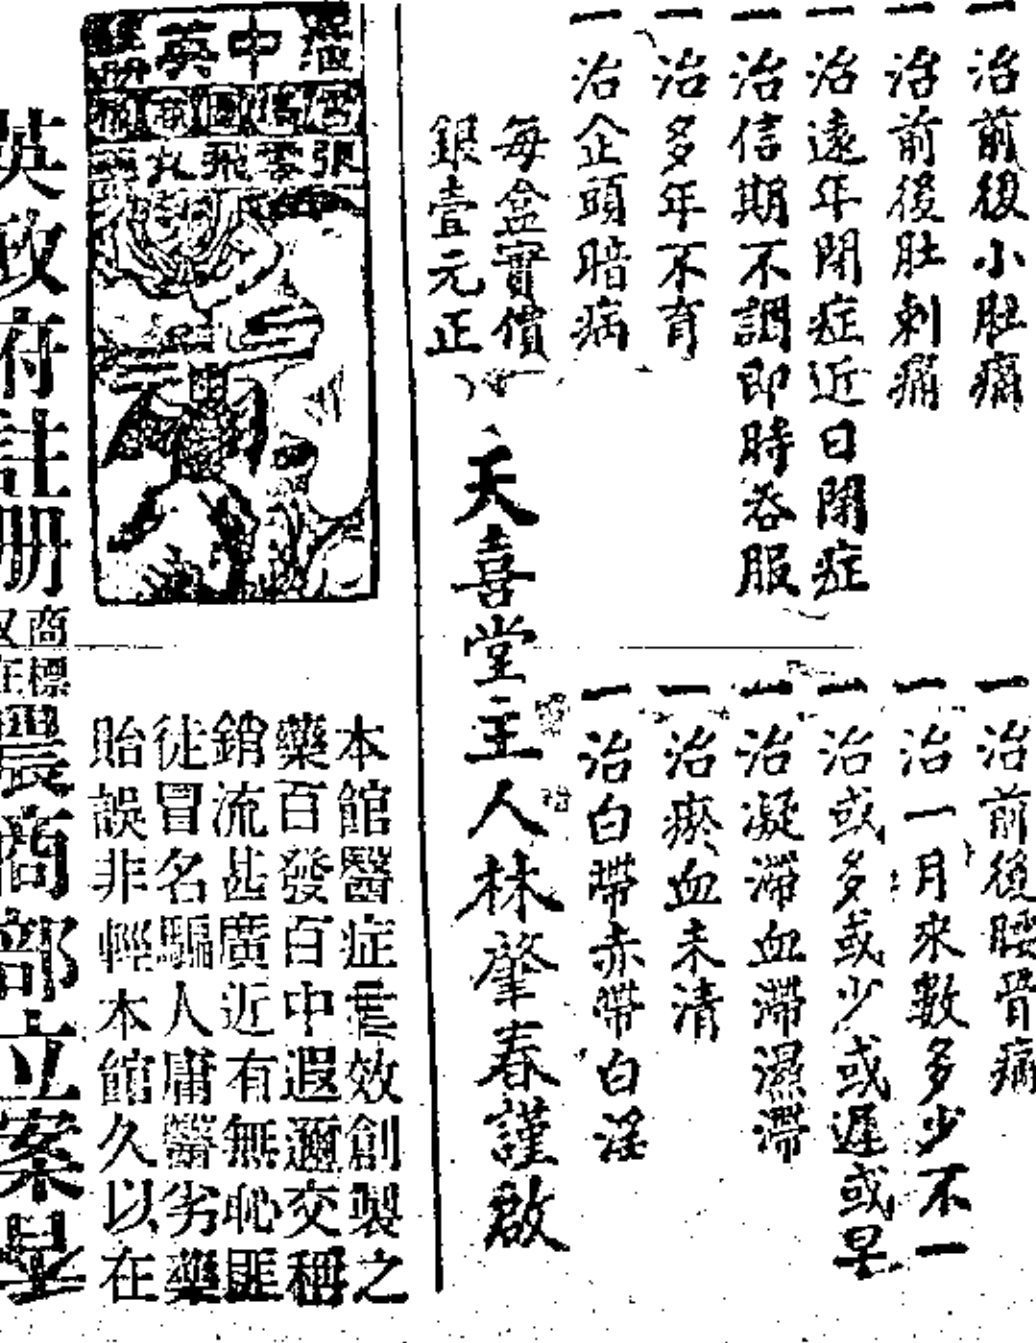 一治前後小肚痛
一治前後肚刺痛
一治遠年閉症近日閉症
一治信期不調即時吞服
一治多年不育
一治企頭暗病
一治前後腰骨痛
一治一月來數多少不一
一治或多或少或遲或早
一治凝滯血滯濕滯
一治瘀血未清
一治白帶赤帶白淫
每盒實價
銀壹元正
天喜堂主人林肇春謹啟
中英
張零飛丸
本館醫症靈效創製之
藥百發百中遐邇交稱
銷流甚廣近有無恥匪
徒冒名騙人庸醫劣藥
貽誤非輕本館久以在
英政府註册
商標
農商部立案